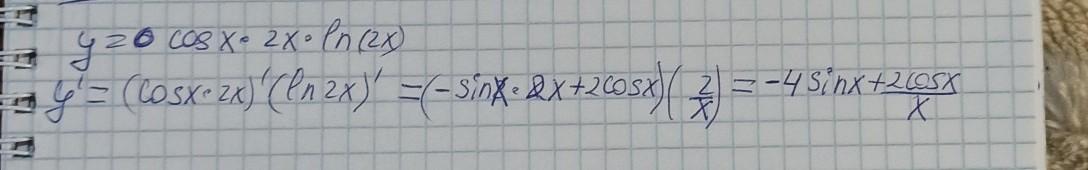 y = 6 cos x · 2x · ln(2x)
y' = (cos x · 2x)'(ln 2x)' = (- sin x · 2x + 2 cos x)(2/x) = -4 sin x + 2cos x/x